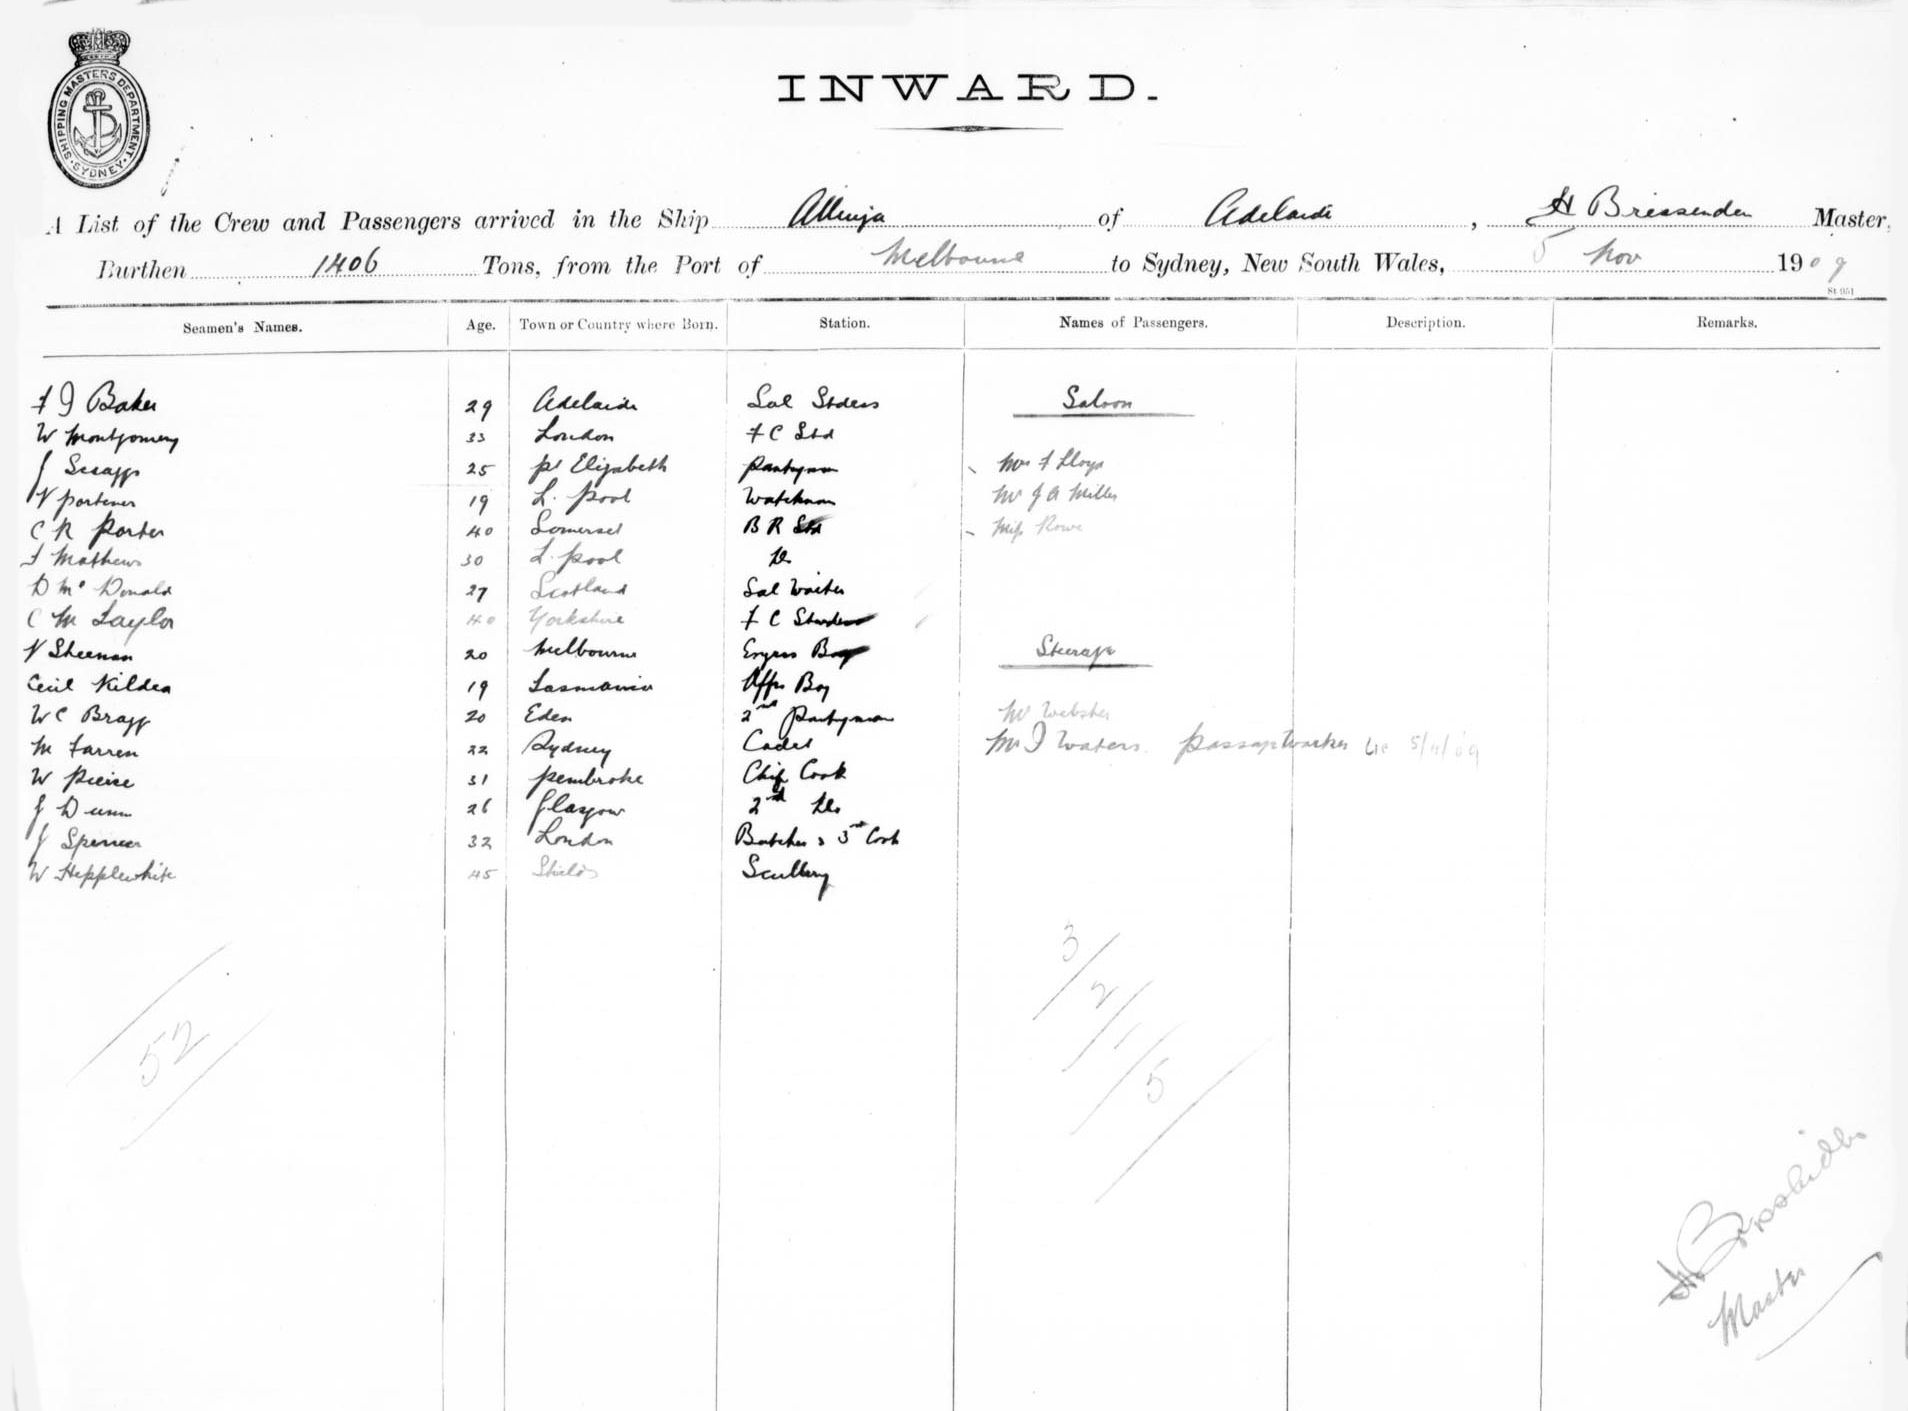 SHIPPING MASTERS DEPARTMENT
SYDNEY
INWARD.
A List of the Crew and Passengers arrived in the Ship Allinga of Adelaide, H Brissenden Master,
Burthen 1406 Tons, from the Port of Melbourne to Sydney, New South Wales, 5 Nov 1909
St 951
Seamen's Names. Age. Town or Country where Born. Station. Names of Passengers. Description. Remarks.
F J Baker 29 Adelaide Sal Stdess Saloon
W Montgomery 33 London F C Std
J Scraggs 25 pt Elizabeth pantryman Mrs F Lloyd
V portener 19 L. pool Watchman Mr J A Miller
C R Porter 40 Somerset B R Std Miss Rowe
F Mathews 30 L. pool Do
D Mc Donald 27 Scotland Sal Waiter
C M Taylor 40 Yorkshire F C
V Sheenan 20 Melbourne Engrs Boy Steerage
Cecil Kildea 19 Tasmania Offrs Boy
W C Bragg 20 Eden 2nd Pantryman Mr Webster
M Farren 22 Sydney Cadet Mr J Waters. passage worker Lic 5/11/09
W Pierce 31 pembroke Chief Cook
J Dunn 26 Glasgow 2nd Do
J Spencer 32 London Butcher & 3rd Cook
W Hepplewhite 45 Shields Scullery
3
2
52 1
5
H Brissenden
Master